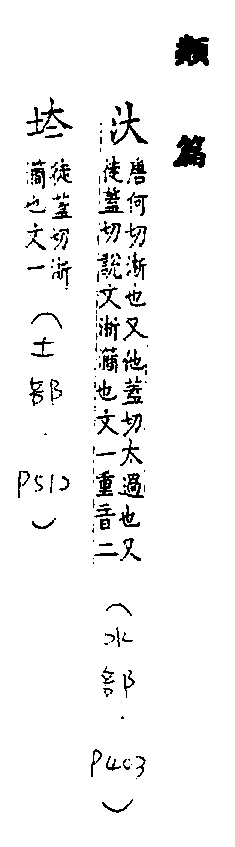 類篇
汏
唐何切淅也又他蓋切太過也又
徒蓋切說文淅灡也文一重音二
（水部．P403）
徒蓋切淅
灡也文一
（土部．P512）